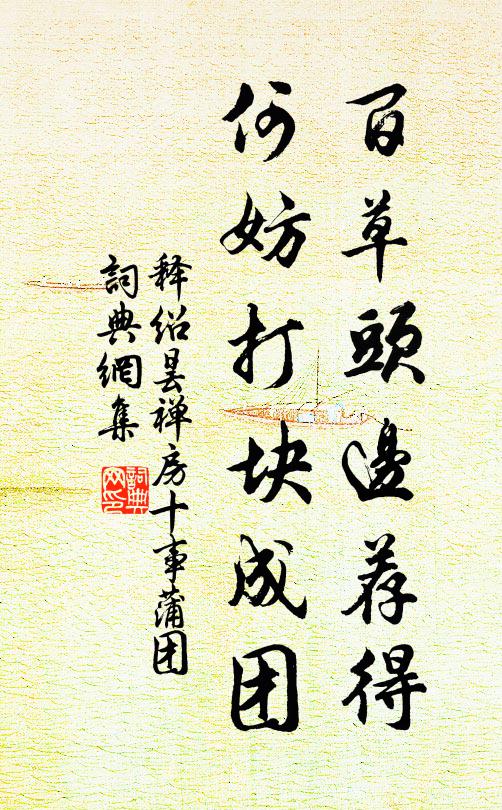 百草頭邊荐得
何妨打块成团
释绍昙禅房十事蒲团
詞典網集
詞典网印